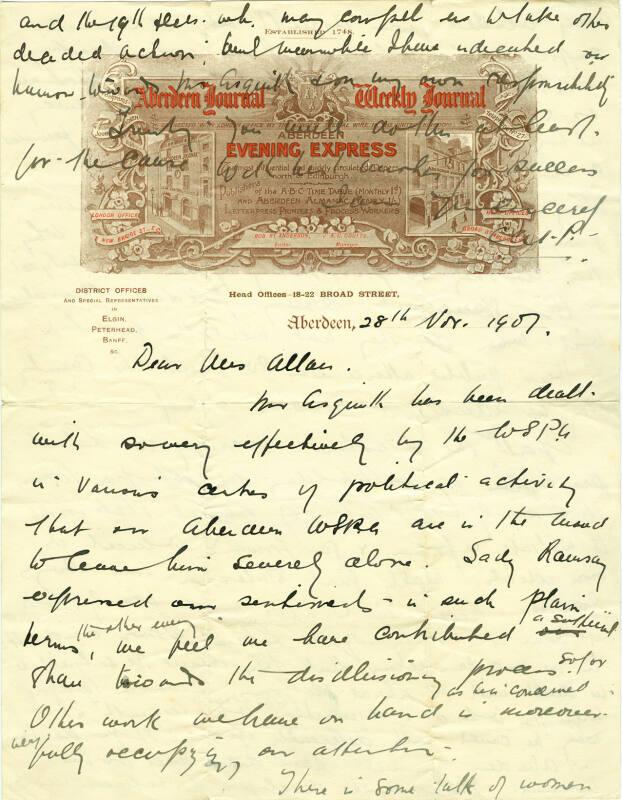 and the 19th Dec. wh. may compel us to take other
decided action; but meanwhile I have indicated our
humor towards Mr Asquith upon my own responsibility
Trusting you will do this at least
for the cause with best wishes for success
ESTABLISHED 1748.
Aberdeen Journal
Weekly Journal
ABERDEEN
EVENING EXPRESS
Publishers
of the A·B·C TIME TABLE (MONTHLY 1d)
AND ABERDEEN ALMANAC
LETTERPRESS PRINTERS & PROCESS WORKERS
LONDON OFFICE
NEW BRIDGE ST. E.C.
HEAD OFFICE
BROAD ST
DISTRICT OFFICES
AND SPECIAL REPRESENTATIVES
IN
ELGIN,
PETERHEAD,
BANFF,
&C.
Head Offices—18-22 BROAD STREET,
Aberdeen, 28th Nov. 1907.
Dear Mrs Allan.
Mr Asquith has been dealt
with so very effectively by the WSPU
in various centres of political activity
that our Aberdeen WSPU are in the mood
to leave him severely alone. Lady Ramsay
expressed our sentiments in such plain
terms, the other evening, we feel we have contributed a sufficient
share towards the disillusioning process so far
as he is concerned
Other work we have on hand is moreover
very fully occupying our attention.
There is some talk of women